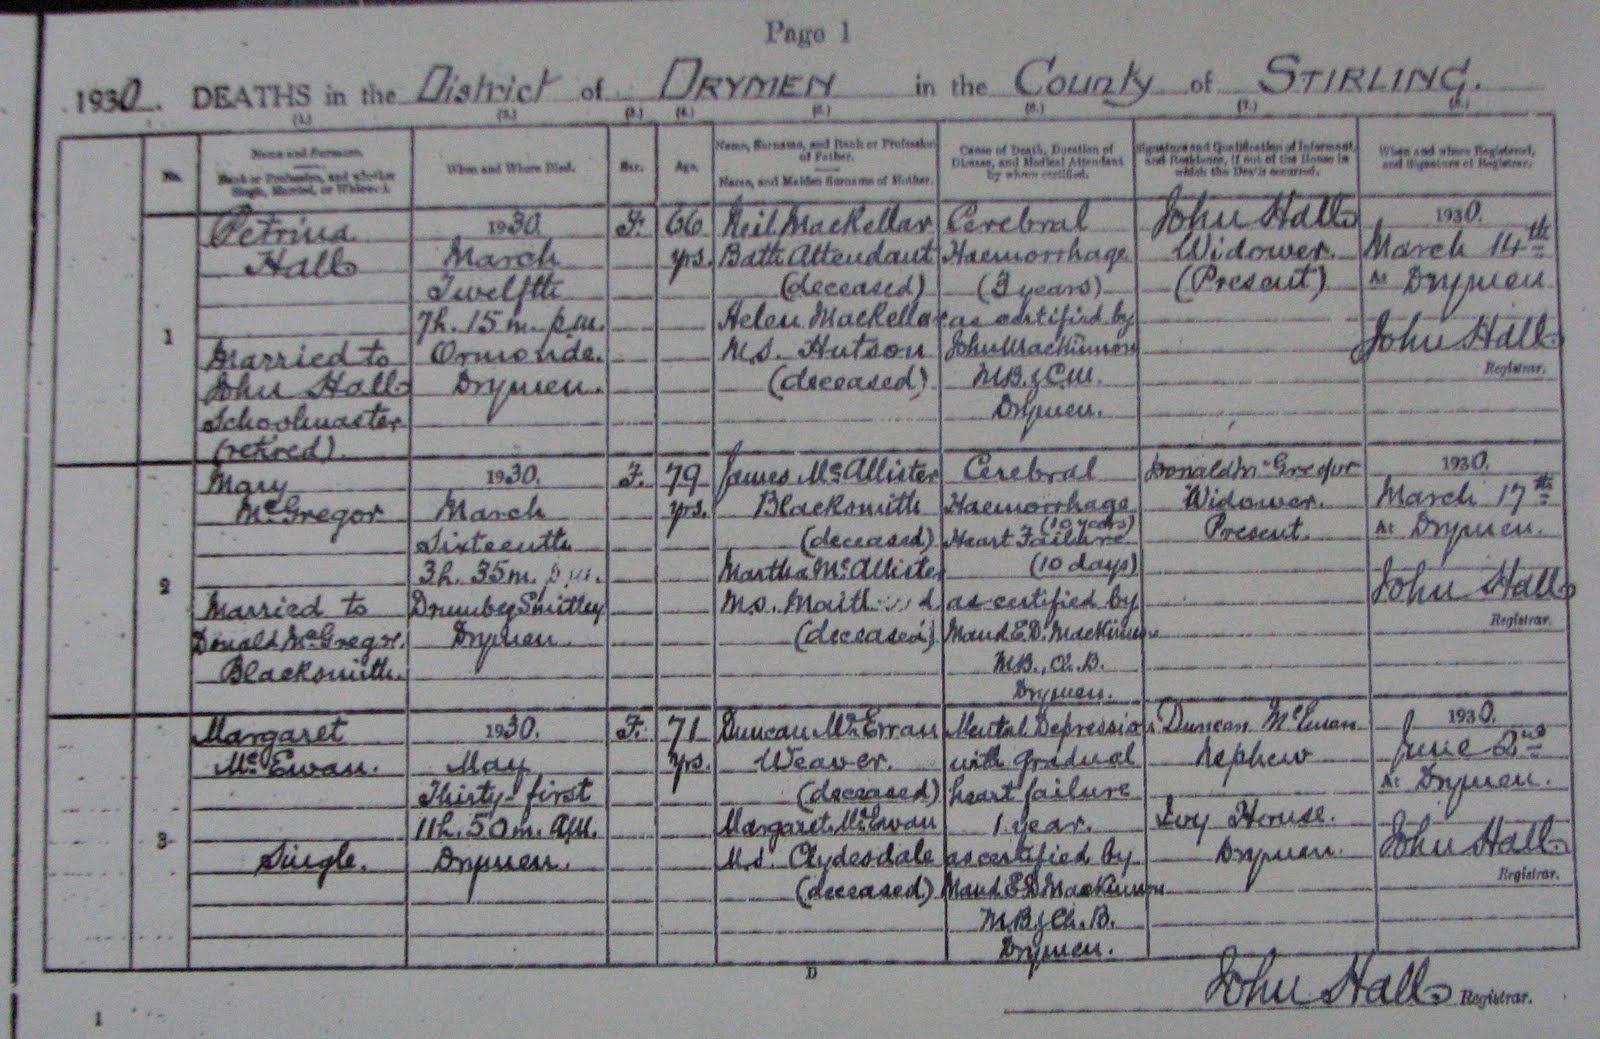 Page 1
1930. DEATHS in the District of DRYMEN in the County of STIRLING.
(1.) (2.) (3.) (4.) (5.) (6.) (7.) (8.)
No.
Name and Surname.
Rank or Profession, and whether
Single, Married, or Widowed.
When and Where Died.
Sex.
Age.
Name, Surname, and Rank or Profession
of Father.
Name, and Maiden Surname of Mother.
Cause of Death, Duration of
Disease, and Medical Attendant
by whom certified.
Signature and Qualification of Informant,
and Residence, if out of the House in
which the Death occurred.
When and where Registered,
and Signature of Registrar.
1
Petrina
Hall
Married to
John Hall
Schoolmaster
(retired).
1930.
March
Twelfth
7h. 15m. p.m.
Ormonde.
Drymen.
F.
66
yrs.
Neil MacKellar
Bath Attendant
(deceased)
Helen MacKellar
M.S. Hutson
(deceased)
Cerebral
Haemorrhage
(3 years)
as certified by
John MacKinnon
M.B. & C.M.
Drymen.
John Hall
Widower.
(Present)
1930.
March 14th
At Drymen
John Hall
Registrar.
2
Mary
McGregor
Married to
Donald McGregor.
Blacksmith.
1930.
March
Sixteenth
3h. 35m. p.m.
Drumbeg Smithy
Drymen.
F.
79
yrs.
James McAllister
Blacksmith
(deceased)
Martha McAllister
M.S. Mait d
(deceased).
Cerebral
Haemorrhage
(10 years)
Heart Failure
(10 days)
as certified by
Maud E.D. MacKinnon
M.B., Ch.B.
Drymen.
Donald McGregor
Widower.
Present.
1930.
March 17th
At Drymen.
John Hall
Registrar.
3
Margaret
McEwan.
Single.
1930.
May
Thirty-first
11h. 50m. A.M.
Drymen.
F.
71
yrs.
Duncan McEwan
Weaver.
(deceased)
Margaret McEwan
M.S. Clydesdale
(deceased)
Mental Depression
with gradual
heart failure
1 year.
as certified by
Maud E.D. MacKinnon
M.B. & Ch.B.
Drymen.
Duncan McEwan
Nephew
Ivy House.
Drymen.
1930.
June 2nd
At Drymen.
John Hall
Registrar.
D
John Hall Registrar.
1